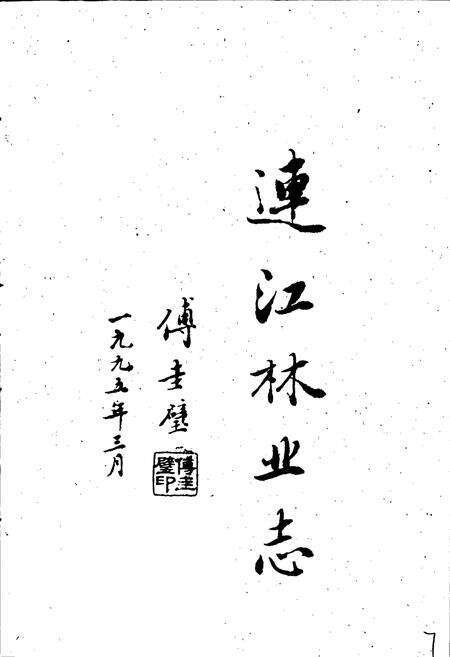 連江林业志
傅圭璧
傅圭璧印
一九九五年三月
7